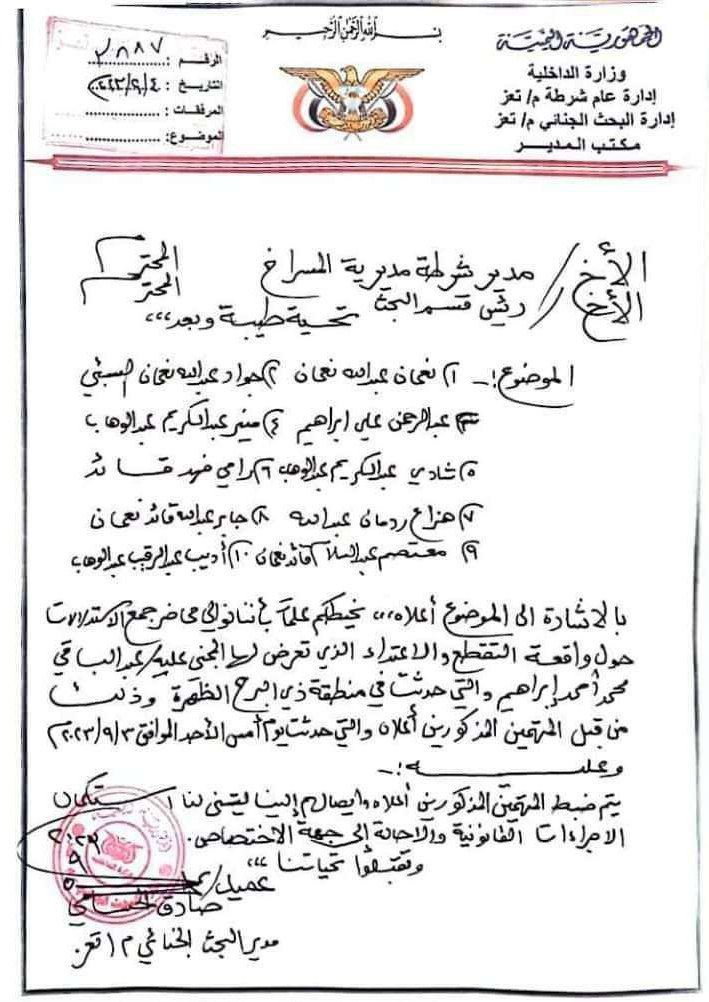 بسم الله الرحمن الرحيم
الجمهورية اليمنية
وزارة الداخلية
إدارة عام شرطة م/ تعز
إدارة البحث الجنائي م/ تعز
مكتب المدير
الرقم : ٢٨٨٧
التاريخ : ٢٠٢٣/٩/٤
المرفقات :
الموضوع:
الأخ/ مدير شرطة مديرية المسراخ المحترم
الأخ/ رئيس قسم البحث المحترم
تحية طيبة وبعد،،،
الموضوع:ـ ١) نعمان عبدالله نعمان ٢) جواد عبدالله نعمان
٣) عبدالرحمن علي ابراهيم ٤) منير عبدالكريم عبدالوهاب
٥) شادي عبدالكريم عبدالوهاب ٦) رامي فهد قائد
٧) هزاع ردمان عبدالله ٨) جابر عبدالله قائد نعمان
٩) معتصم عبدالسلام قائد نعمان ١٠) أديب عبدالرقيب عبدالوهاب
بالاشارة الى الموضوع أعلاه،،، نحيطكم علماً بأننا نوالي محاضر جمع الاستدلالات
حول واقعة التقطع والاعتداء الذي تعرض لها المجنى عليه/ عبدالباقي
محمد أحمد إبراهيم والتي حدثت في منطقة ذي البرح الظهرة وذلك
من قبل المتهمين المذكورين أعلاه والتي حدثت يوم أمس الأحد الموافق ٢٠٢٣/٩/٣
وعليه:ـ
يتم ضبط المتهمين المذكورين أعلاه وايصالهم إلينا ليتسنى لنا استكمال
الاجراءات القانونية والاحالة إلى جهة الاختصاص.
وتقبلوا تحياتنا،،،
عميد/
صادق الحسامي
مدير البحث الجنائي م/ تعز